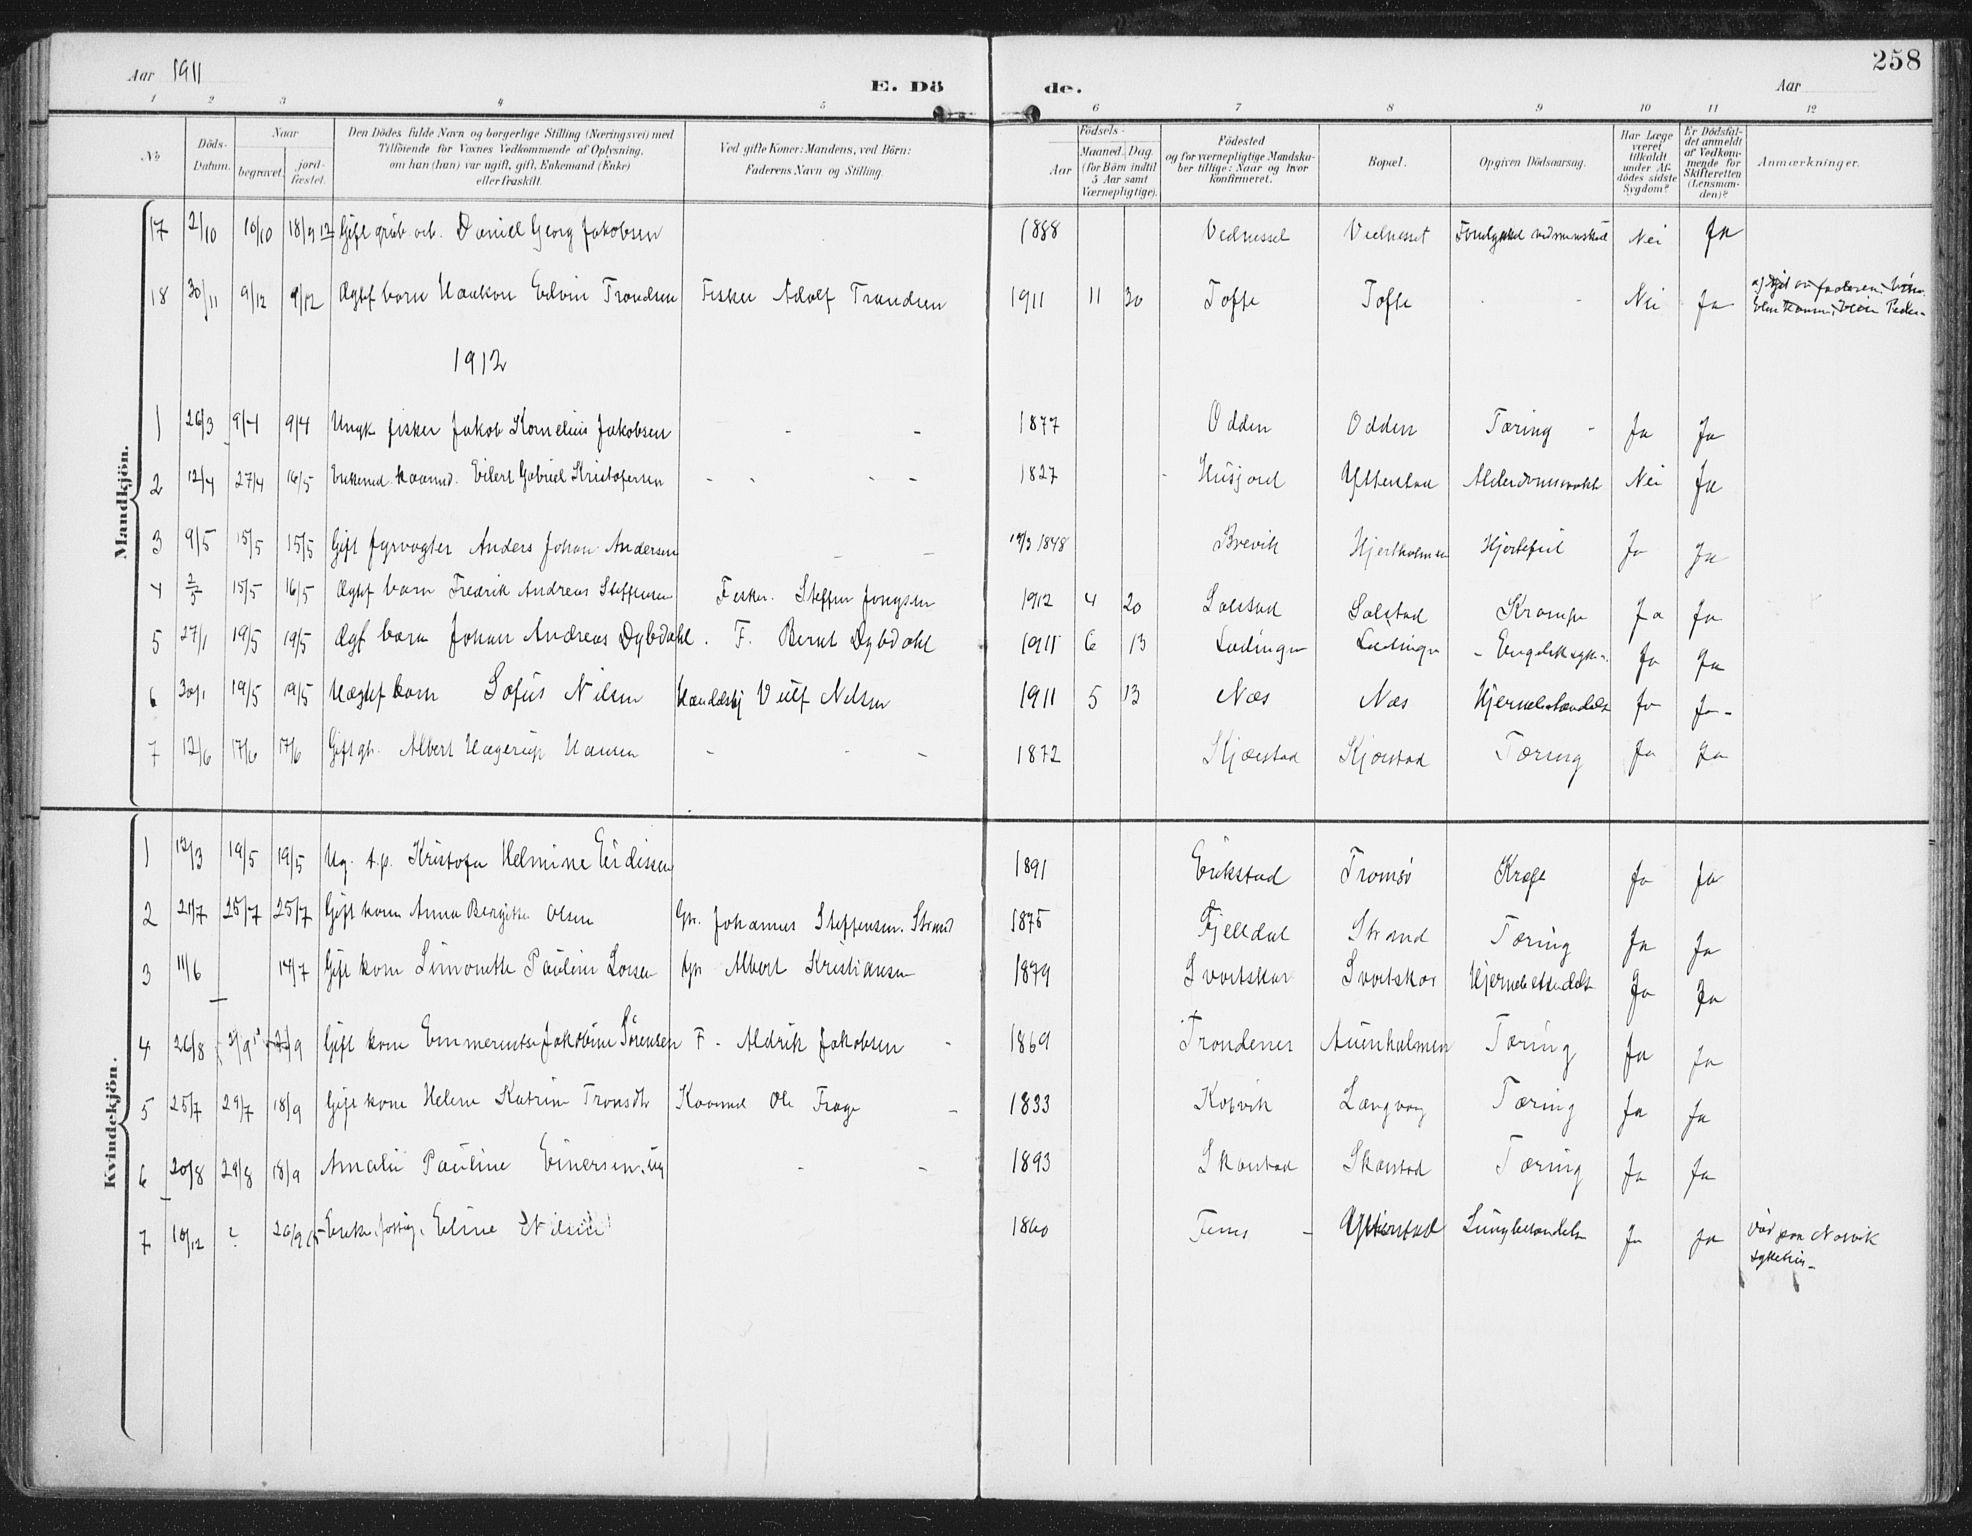 Aar 1911
E. Dö de.
Aar
258
1 2 3 4 5 6 7 8 9 10 11 12
No
Döds-Datum.
Naar
begravet.
jord-fæstet.
Den Dödes fulde Navn og borgerlige Stilling (Næringsvei) med
Tilföiende for Voxnes Vedkommende af Oplysning,
om han (hun) var ugift, gift, Enkemand (Enke)
eller fraskilt.
Ved gifte Koner: Mandens, ved Börn:
Faderens Navn og Stilling.
Födsels-
Aar
Maaned. Dag.
(for Börn indtil
5 Aar samt
Værnepligtige).
Födested
og for værnepligtige Mandska-
ber tillige: Naar og hvor
konfirmeret.
Bopæl.
Opgiven Dödsaarsag.
Har Læge
været
tilkaldt
under Af-
dödes sidste
Sygdom?
Er Dödsfal-
det anmeldt
af Vedkom-
mende for
Skifteretten
(Lensman-
den)?
Anmærkninger.
Mandkjön.
17 2/10 10/10 18/9 12 Gift grub. arb. Daniel Georg Jakobsen 1888 Vednesset Vednesset Nei Ja
18 30/11 9/12 9/12 Ægtef barn Haakon Edvin Trondsen Fisker Adolf Trondsen 1911 11 30 Tofte Tofte - - Nei Ja
1912
1 26/3 9/4 9/4 Ungk fisker Jakob Kornelius Jakobsen - - 1877 Odden Odden Tæring - Ja Ja
2 12/4 27/4 16/5 Enkemd. kaarmd. Eilert Gabriel Kristofersen - - - - 1827 - Husjord Ytterstad Alderdomssvakh Nei Ja
3 9/5 15/5 15/5 Gift fyrvogter Anders Johan Andersen - - 19/3 1848 Brevik Hjertholmen Hjertefeil Ja Ja
4 2/5 15/5 16/5 Ægtef barn Fredrik Andreas Steffensen Fisker. Steffen Jongsen 1912 4 20 Solstad Solstad Krampe Ja Ja
5 27/1 19/5 19/5 Ægf barn Johan Andreas Dybdahl. F. Bernt Dybdahl 1911 6 13 Lødingen Lødingen - Engelsk syke. Ja Ja
6 30/1 19/5 19/5 Uægtef barn Sofus Nilsen Handelsbtj Vulf Nilsen 1911 5 13 Næs Næs Hjernebetændelse Ja Ja -
7 12/6 17/6 17/6 Gift gb. Albert Hagerup Hansen - - - 1872 Skjærstad Skjærstad Tæring Ja Ja
Kvindekjön.
1 12/3 19/5 19/5 Ug. t.p. Kristofa Helmine Eidissen 1891 Erikstad Tromsø Kræft Ja Ja
2 21/7 25/7 25/7 Gift kone Anna Bergitte Olsen Gb. Johannes Steffensen. Strand 1875 Fjelldal Strand Tæring Ja Ja
3 11/6 14/7 Gift kone Simonette Pauline Larsen Gb Albert Kristiansen 1879 Svartskar Svartskar Hjernebetændelse Ja Ja
4 26/8 Gift kone Emmerentse Jakobine Sørensen F - Aldrik Jakobsen - 1869 Trondenes Auenholmen Tæring Ja Ja
5 25/7 29/7 18/9 Gift kone Helene Katrine Tronsdtr Kaarmd Ole Frage - 1833 Kobvik Langvag Tæring Ja Ja
6 20/8 29/8 18/9 Amalie Pauline Einersen, ug - - 1893 Skarstad Skarstad Tæring Ja Ja
7 10/12 ? 26/9 15 Enke, Eline Nilsen 1860 - Ytterstad Lungebetændelse Ja Ja Død paa Narvik
sykehus -